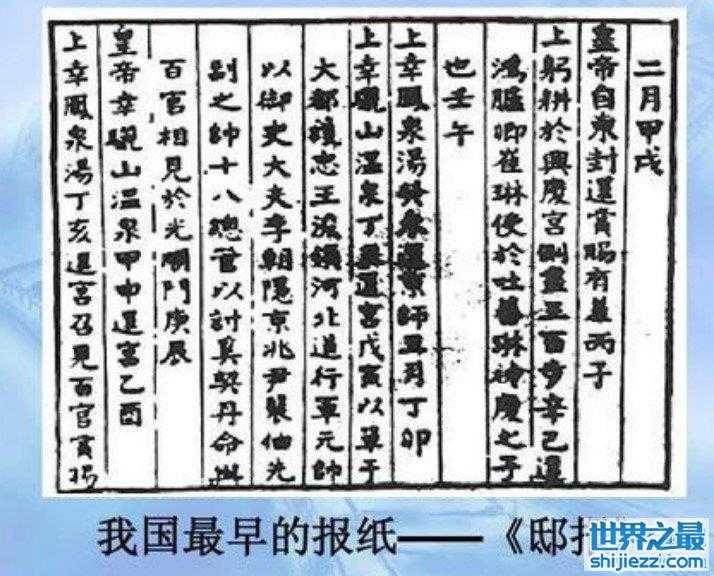 二月甲戌
皇帝自東封還賞賜有差丙子
上躬耕於興慶宮側盡三百步辛已還
鴻臚卿崔琳使於吐蕃琳慶之子
也壬午
上幸鳳泉湯癸未還京師月丁卯
上幸驪山溫泉丁還宮戊寅以單于
大都護忠王浚領河北道行軍元帥
以御史大夫李朝隱京兆尹裴伷先
副之帥十八總管以討奚契丹命與
百官相見於光明門庚辰
皇帝幸驪山溫泉甲申還宮乙酉
上幸鳳泉湯丁亥還宮召見百官賞賜
我国最早的报纸——《邸
世界之最
shijiezz.com